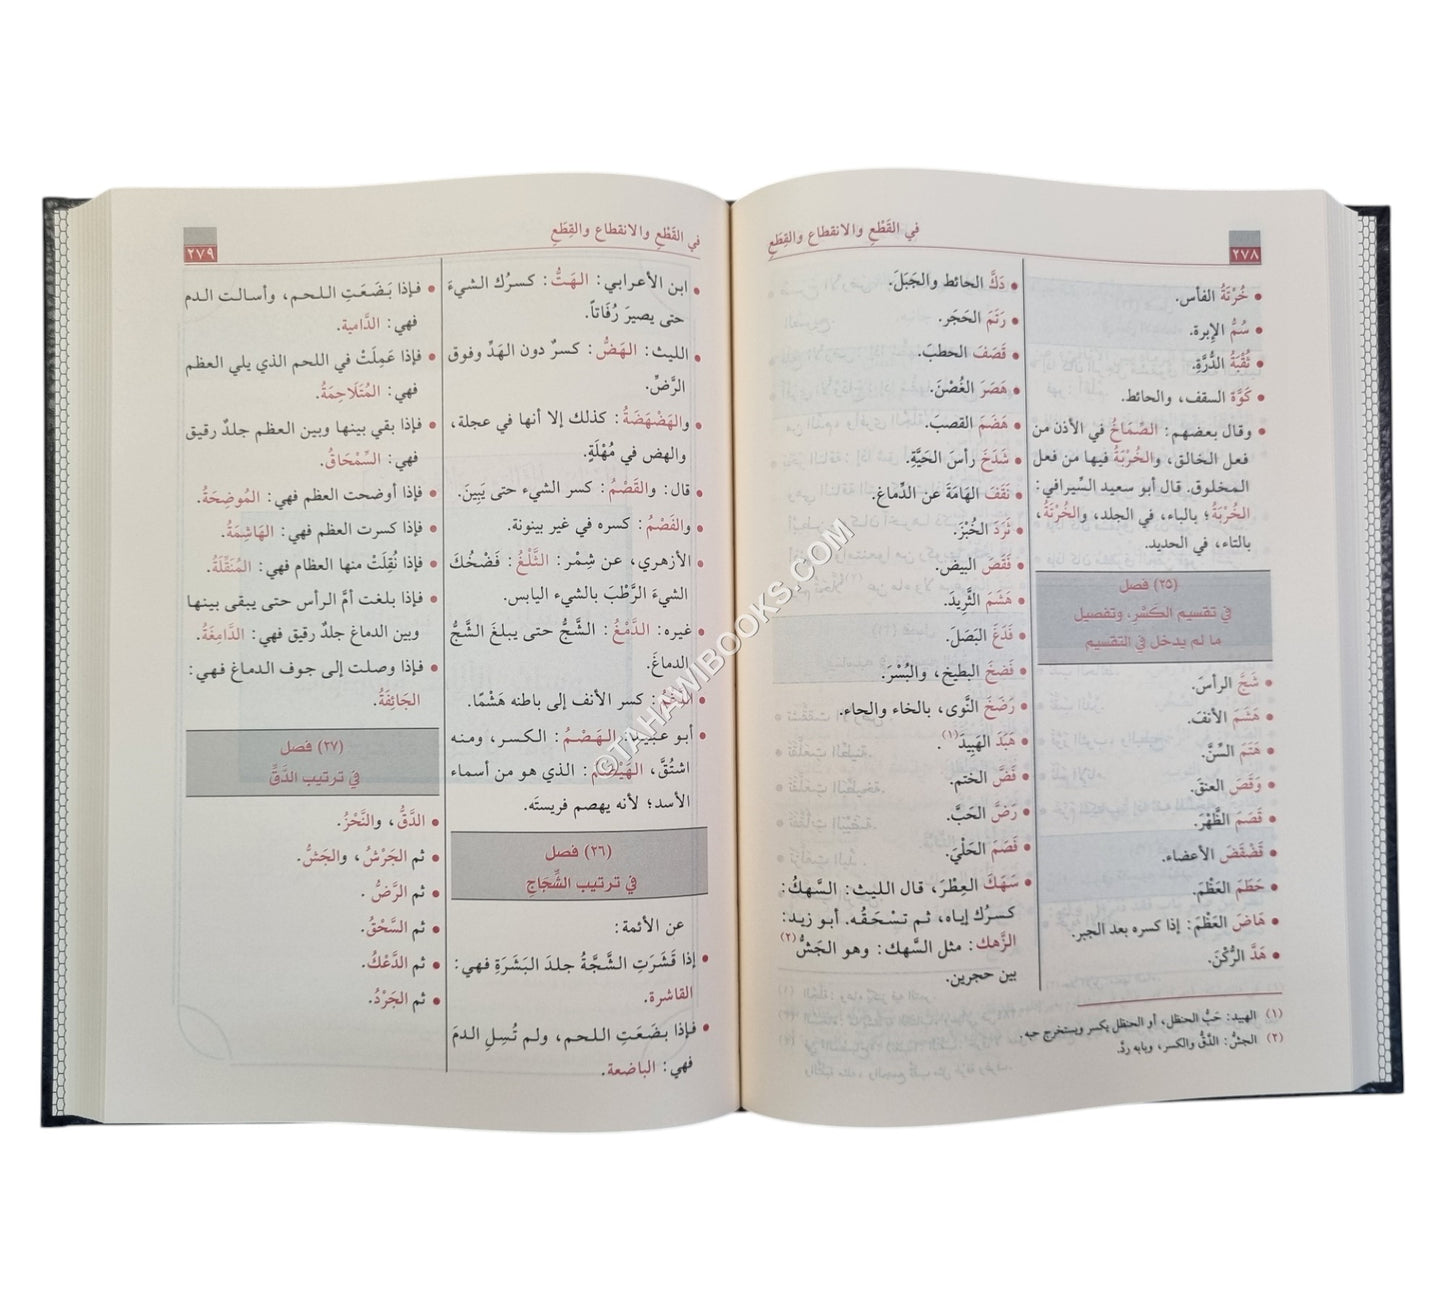 ٢٧٨
في القَطْعِ والانقطاع والقِطَعِ
• خُرْتَةُ الفأس.
• سُمُّ الإبرة.
• ثُقْبَةُ الدُّرَّةِ.
• كَوَّة السقف، والحائط.
• وقال بعضهم: الصِّمَاخُ في الأذن من
فعل الخالق، والخُرْبَةُ فيها من فعل
المخلوق. قال أبو سعيد السِّيرافي:
الخُرْبَةُ؛ بالباء، في الجلد، والخُرْتَةُ،
بالتاء، في الحديد.
(٢٥) فصل
في تقسيم الكَسْرِ، وتفصيل
ما لم يدخل في التقسيم
• شَجَّ الرأسَ.
• هَشَمَ الأنفَ.
• هَتَمَ السِّنَّ.
• وَقَصَ العنقَ.
• قَصَمَ الظَّهْرَ.
• قَضْقَضَ الأعضاء.
• حَطَمَ العَظْمَ.
• هَاضَ العَظْمَ: إذا كسره بعد الجبر.
• هَدَّ الرُّكْنَ.
• دَكَّ الحائط والجَبَلَ.
• رَتَمَ الحَجَر.
• قَصَفَ الحطبَ.
• هَصَرَ الغُصْنَ.
• هَضَمَ القصبَ.
• شَدَخَ رأسَ الحَيَّةِ.
• نَقَفَ الهَامَةَ عن الدِّماغ.
• ثَرَدَ الخُبْزَ.
• فَقَصَ البيضَ.
• هَشَمَ الثَّرِيدَ.
• فَدَغَ البَصَلَ.
• فَضَخَ البطيخَ، والبُسْرَ.
• رَضَخَ النَّوى، بالخاء والحاء.
• هَبَدَ الهَبِيدَ(١).
• فَضَّ الختم.
• رَضَّ الحَبَّ.
• فَصَمَ الحَلْيَ.
• سَهَكَ العِطْرَ، قال الليث: السَّهكُ:
كسرُك إياه، ثم تسْحَقُه. أبو زيد:
الرَّهك: مثل السَّهك: وهو الجَشُّ(٢)
بين حجرين.
(١) الهبيد: حَبُّ الحنظل، أو الحنظل يكسر ويستخرج حبه.
(٢) الجشُّ: الدَّقُّ والكسر، وبابه ردَّ.
في القَطْعِ والانقطاع والقِطَعِ
٢٧٩
• ابن الأعرابي: الهَتُّ: كسرُك الشيءَ
حتى يصيرَ رُفَاتاً.
• الليث: الهَضُّ: كسرٌ دون الهَدِّ وفوق
الرَّضِّ.
• والهَضْهَضَةُ: كذلك إلا أنها في عجلة،
والهض في مُهْلَةٍ.
• قال: والقَصْمُ: كسر الشيء حتى يَبِينَ.
• والفَصْمُ: كسره في غير بينونة.
• الأزهري، عن شِمْر: الثَّلْغُ: فَضْخُكَ
الشيءَ الرَّطْبَ بالشيء اليابس.
• غيره: الدَّمْغُ: الشَّجُّ حتى يبلغَ الشَّجُّ
الدماغَ.
كسر الأنف إلى باطنه هَشْمًا.
• أبو عبيد: الهَصْمُ: الكسر، ومنه
اشتُقَّ، الهَيْصَم: الذي هو من أسماء
الأسد؛ لأنه يهصم فريستَه.
(٢٦) فصل
في ترتيب الشِّجَاجِ
عن الأئمة:
• إذا قَشَرَتِ الشَّجَّةُ جلدَ البَشَرَةِ فهي:
القاشرة.
• فإذا بضَعَتِ اللحم، ولم تُسِلِ الدمَ
فهي: الباضعة.
• فإذا بَضَعَتِ اللحم، وأسالت الدم
فهي: الدَّامية.
• فإذا عَمِلَتْ في اللحم الذي يلي العظم
فهي: المُتَلَاحِمَةُ.
• فإذا بقي بينها وبين العظم جلدٌ رقيق
فهي: السِّمْحَاقُ.
• فإذا أوضحت العظم فهي: المُوضِحَةُ.
• فإذا كسرت العظم فهي: الهَاشِمَةُ.
• فإذا نُقِلَتْ منها العظام فهي: المُنَقِّلَةُ.
• فإذا بلغت أمَّ الرأس حتى يبقى بينها
وبين الدماغ جلدٌ رقيق فهي: الدَّامِغَةُ.
• فإذا وصلت إلى جوف الدماغ فهي:
الجَائِفَةُ.
(٢٧) فصل
في ترتيب الدَّقِّ
• الدَّقُّ، والنَّحْزُ.
• ثم الجَرْشُ، والجَشُّ.
• ثم الرَّضُّ.
• ثم السَّحْقُ.
• ثم الدَّعْكُ.
• ثم الجَرْدُ.
©TAHAWIBOOKS.COM